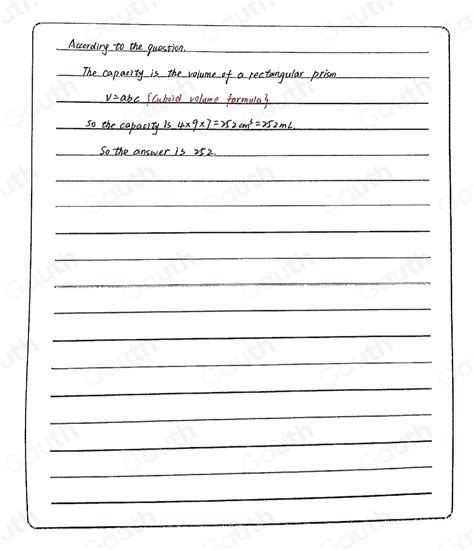 According to the question.
The capacity is the volume of a rectangular prism
V=abc {Cuboid volume formula}
So the capacity is 4×9×7=252cm³=252mL.
So the answer is 252.
Gauth